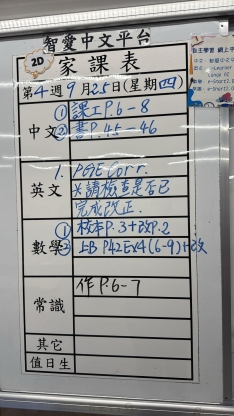 智愛中文平台
2D 家課表
第4週9月25日(星期四)
中文 ①課工P.6-8
②書P.45-46
英文 1. PGE Corr.
*請檢查是否已
完成改正.
數學 ①核本P.3+改P.2
② 上B P42Ex4(6-9)+改
常識 作P.6-7
其它
值日生
自主學習 網上平